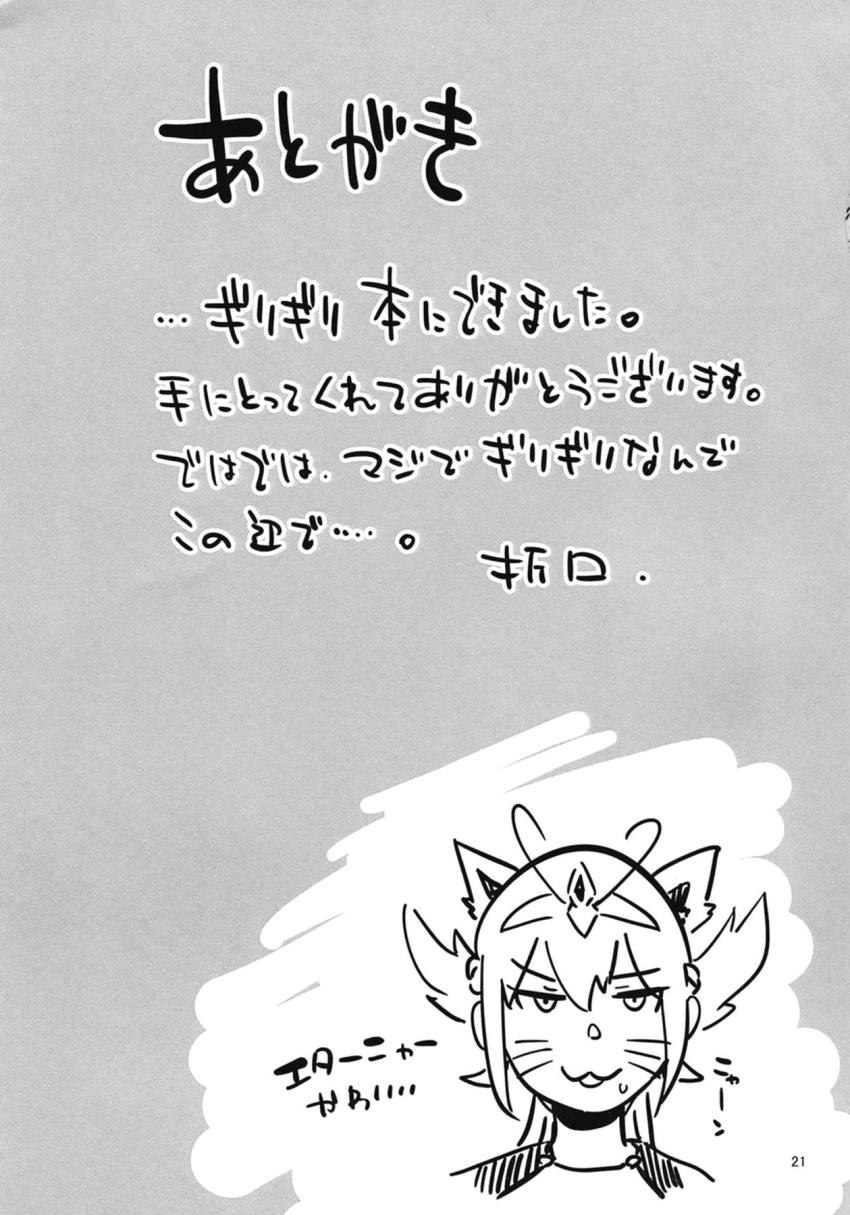 あとがき
…ギリギリ 本にできました。
手にとってくれてありがとうございます。
ではでは、マジでギリギリなんで
この辺で……。
折口.
エターニャー
かわいい
ニャーン
21